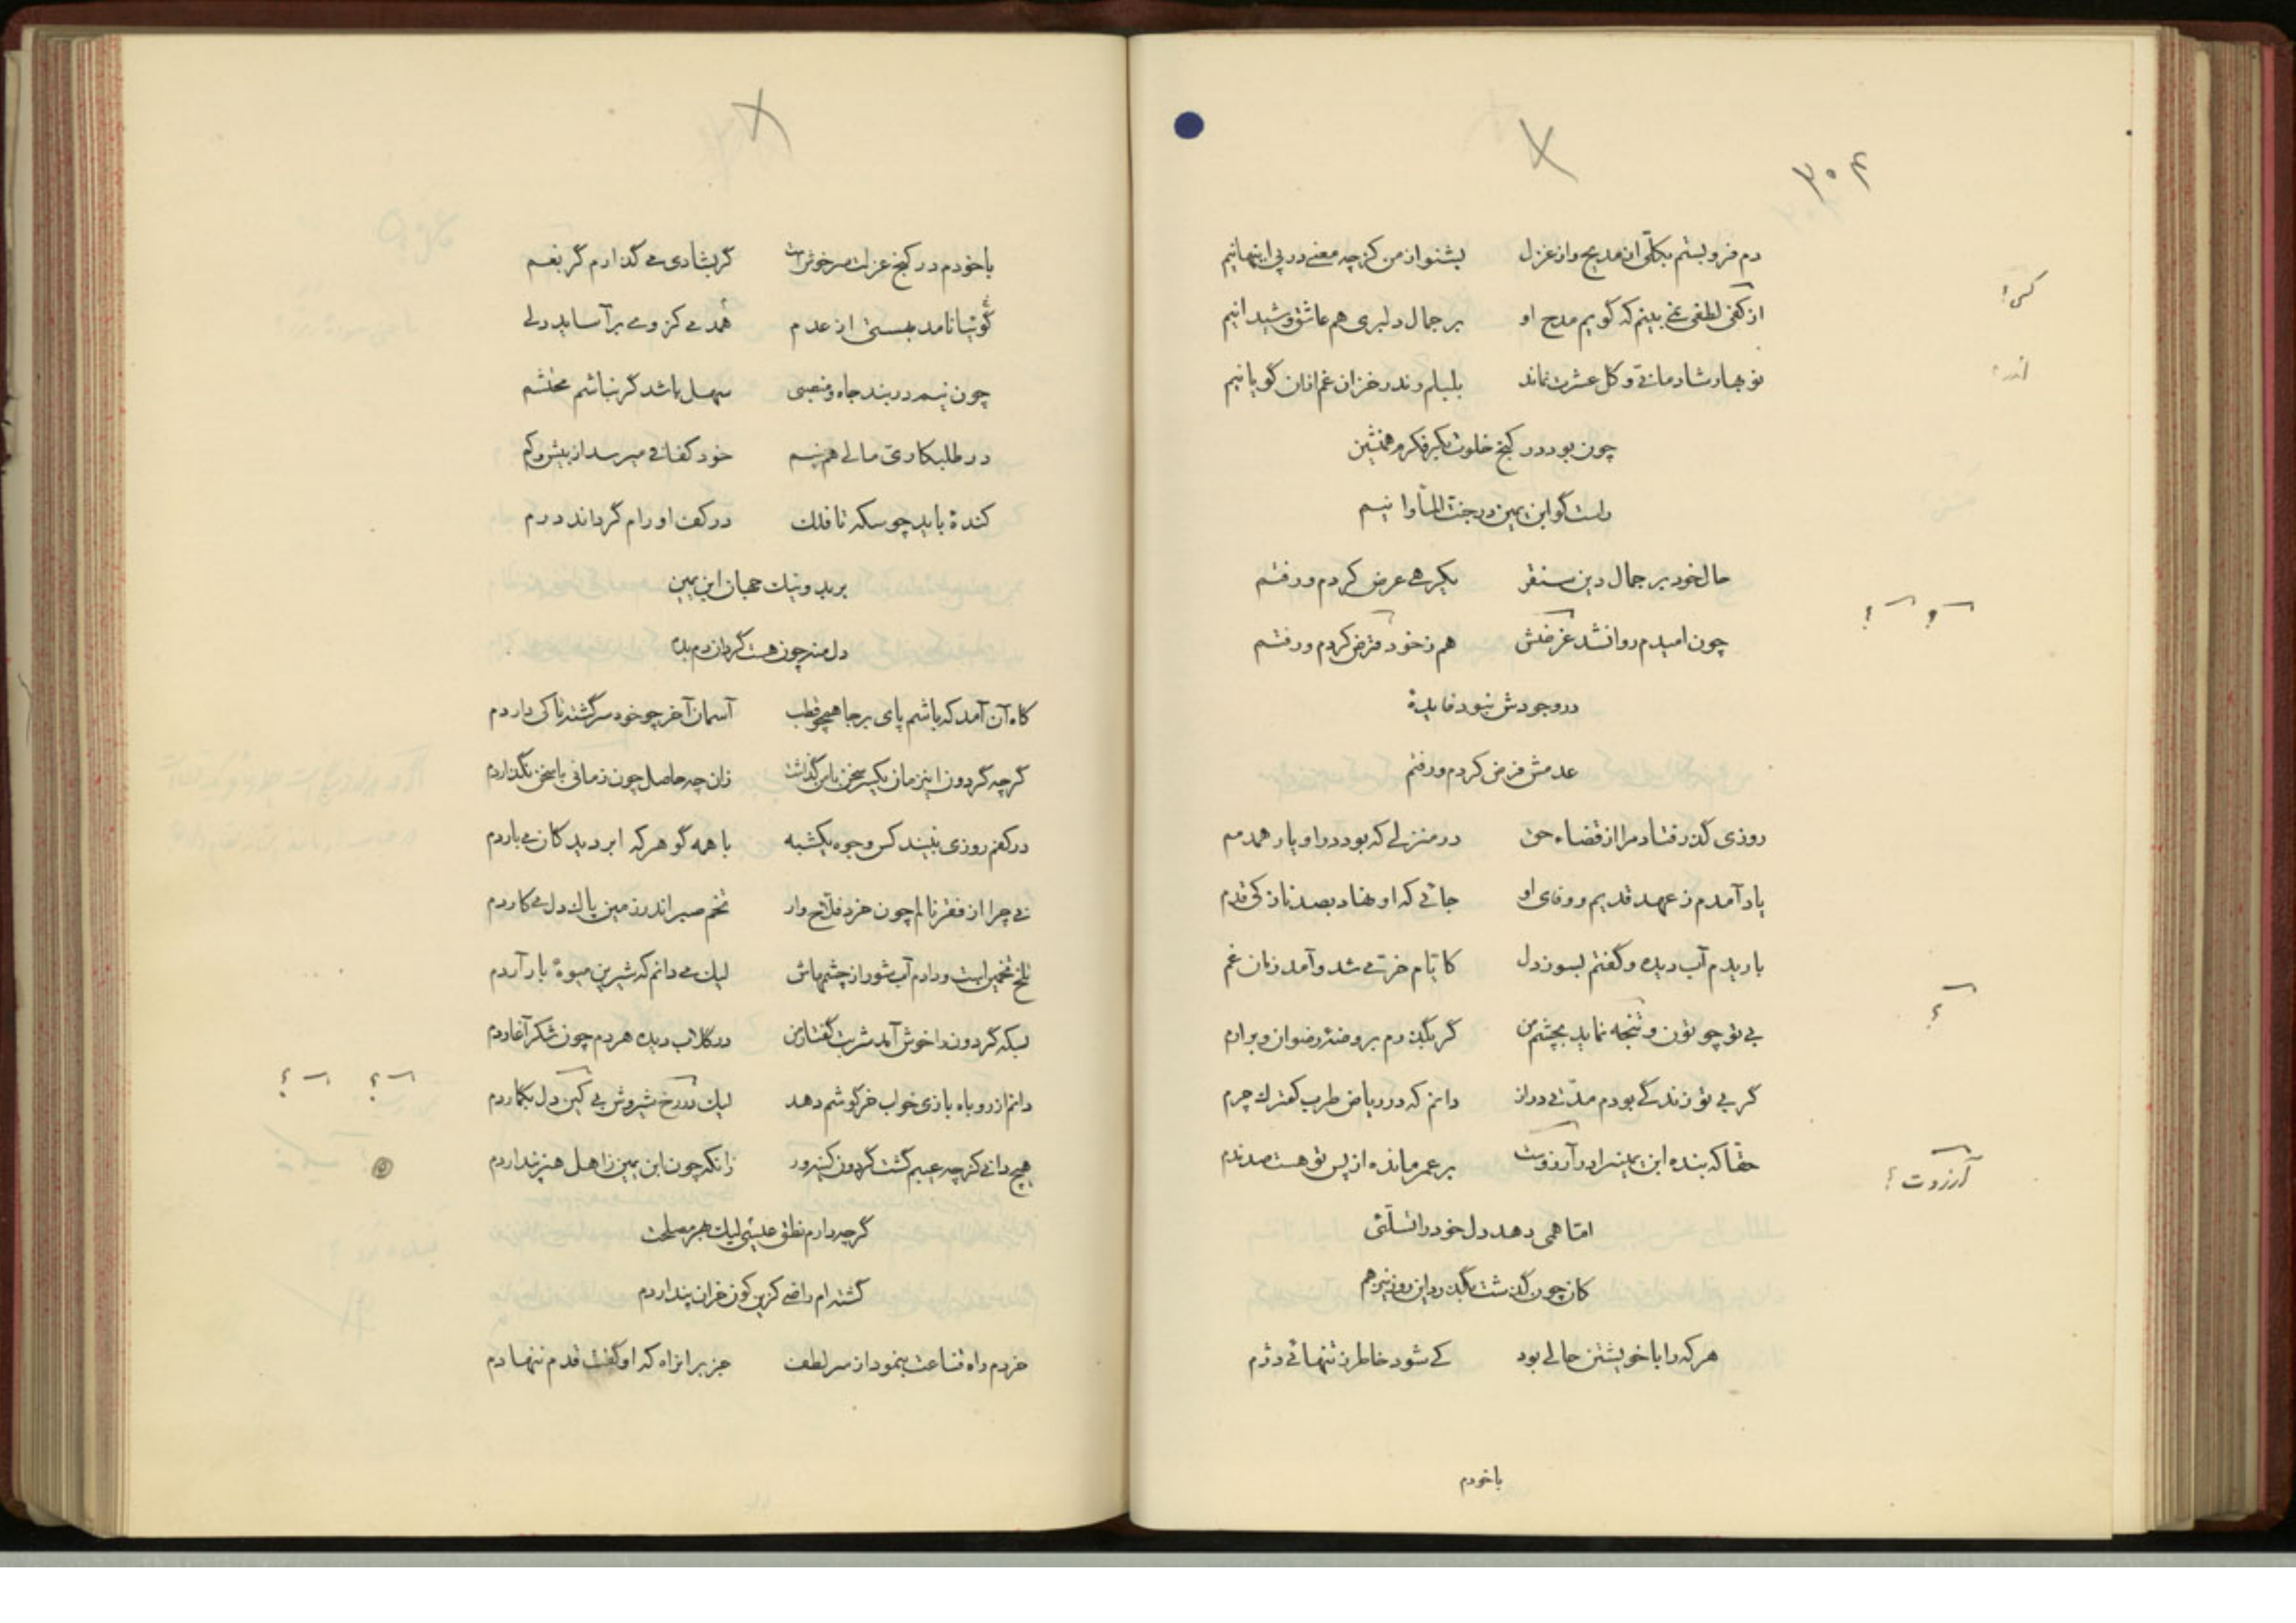 ۳۰۴
دم فرو بستم بکلّی از مدیح و از غزل بشنو از من کز چه معنی در پی اینها نیم
از کفی لطفی نمی بینم که گویم مدح او بر جمال دلبری هم عاشق و شیدا نیم
نوبهار شادمانی و کل عشرت نماند بلبلم وندر خزان غم ازان گویا نیم
چون بود در کنج خلوت بکر فکرم همنشین
راست گو ابن یمین در جنت المأوا نیم
حال خود بر جمال دین سنقر یکرهی عرض کردم و رفتم
چون امیدم روا نشد غرضش هم ز خود قرض کردم و رفتم
در وجودش نبود فایدهٔ
عدمش فرض کردم و رفتم
روزی گذر فتاد مرا از قضاء حق در منزلی که بود در او یار همدمم
یاد آمدم ز عهد قدیم و وفای او جائی که او نهاد بصد ناز کی قدم
باریدم آب دیده و گفتم بسوز دل کایام خرّمی شد و آمد زمان غم
بی تو چو تون و تنجه نماید بچشم من گر بگذرم بروضهٔ رضوان وبر ارم
گر بی تو زندگی بودم مدّتی دراز دانم که در ریاض طرب کمترک چرم
حقا که بنده ابن یمینرا در آرزوست بر عمر مانده از پس تو هست صد ندم
امّا همی دهد دل خود را تسلّئی
کان چون گذشت بگذرد این روز نیز هم
هرکه را با خویشتن حالی بود کی شود خاطر ز تنهائی دژم
باخودم
کسی؟
آرزوت؟
باخودم در کنج عزلت سرخوش است گر بشادی می گذارم گر بغم
گوئیا نامد بهستی از عدم همدمی کز وی برآساید دلی
چون نیم در بند جاه و منصبی سهل باشد گر نباشم محتشم
در طلبکاریّ مالی هم نیم خود کفافی میرسد از بیش و کم
کندهٔ باید چو سکه تا فلک در کف او رام گرداند درم
بر بد و نیک جهان ابن یمین
دل منه چون هست گردان دم بدم
کاه آن آمد که باشم پای بر جا همچو قطب آسمان آخر چو خود سرگشته تا کی داردم
گرچه گردون اینزمان یکسر سخن با من گذاشت زان چه حاصل چون زمانی با سخن نگذاردم
در کفم روزی نبیند کس وجوه یکشبه با همه گو هرکه ابر دیدکان می باردم
نی چرا از فقر نالم چون خرد فلّاح وار تخم صبر اندر زمین پاک دل می کاردم
تلخ تخمیاست و دارم آب شور از چشمهاش لیک می دانم که شیرین میوهٔ بار آردم
بسکه گردون را خوش آمد شربت گفتار من در گلاب دیده هر دم چون شکر آغاردم
دانم از روباه بازی خواب خرگوشم دهد لیک در رخ شیروش بی کین دل بکماردم
هیچ دانی کز چه عیبم گشت گردون کینه ور زانکه چون ابن یمین ز اهل هنر پنداردم
گرچه دارم نطق عیسی لیک بهر مصلحت
گشته ام راضی کزین کون خران پنداردم
خردم راه قناعت بنمود از سر لطف جز بر انراه که او گفت قدم ننهادم